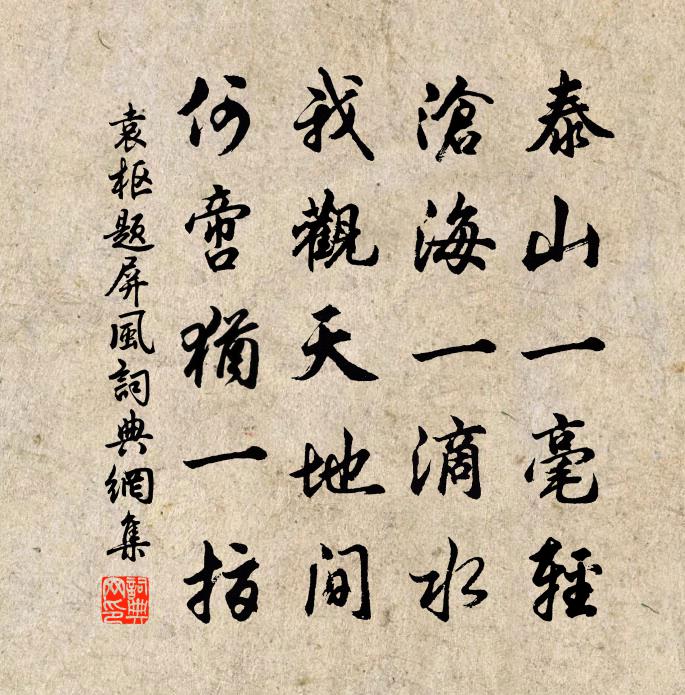 泰山一毫輕
滄海一滴水
我觀天地間
何啻猶一指
袁枢题屏風詞典網集
詞典網印